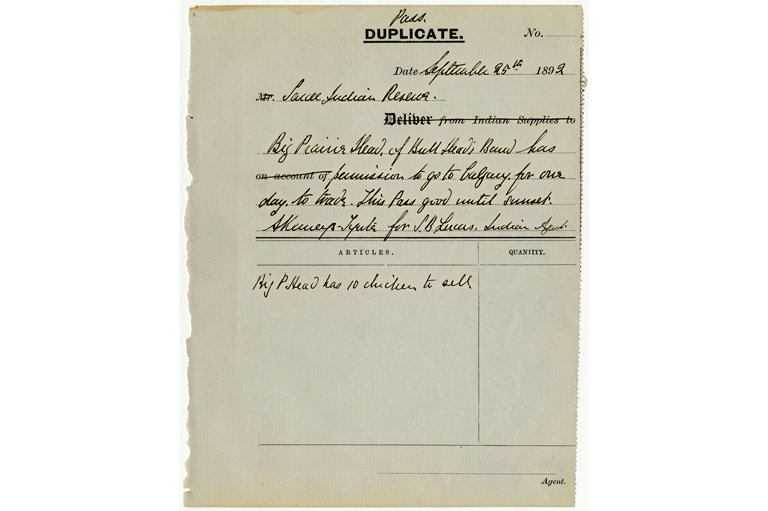 Pass.
DUPLICATE. No.
Date September 25th 1892
Mr. Sarcee Indian Reserve.
Deliver from Indian Supplies to
Big Prairie Head, of Bull Head's Band has
on account of permission to go to Calgary for one
day to trade. This Pass good until sunset.
for S.B. Lucas. Indian Agent.
ARTICLES. QUANTITY.
Big P Head has 10 chicken to sell
Agent.